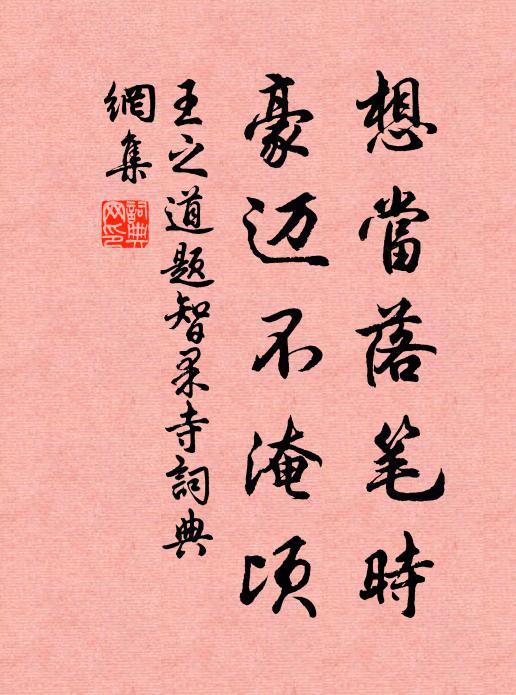 想當落笔時
豪迈不淹顷
王之道题智果寺詞典
網集
詞典网印